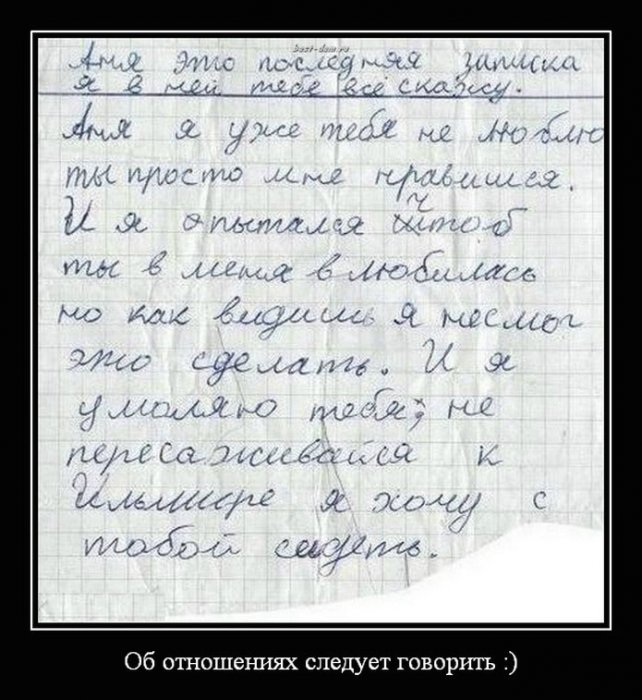 best-dem.ru
Аня это последняя записка
я в ней тебе всё скажу.
Аня я уже тебя не люблю
ты просто мне нравишся.
И я опытался чтоб
ты в меня влюбилась
но как видишь я несмог
это сделать. И я
умоляю тебя, не
пересаживайся к
Ильмире я хочу с
тобой сидеть.
Об отношениях следует говорить :)